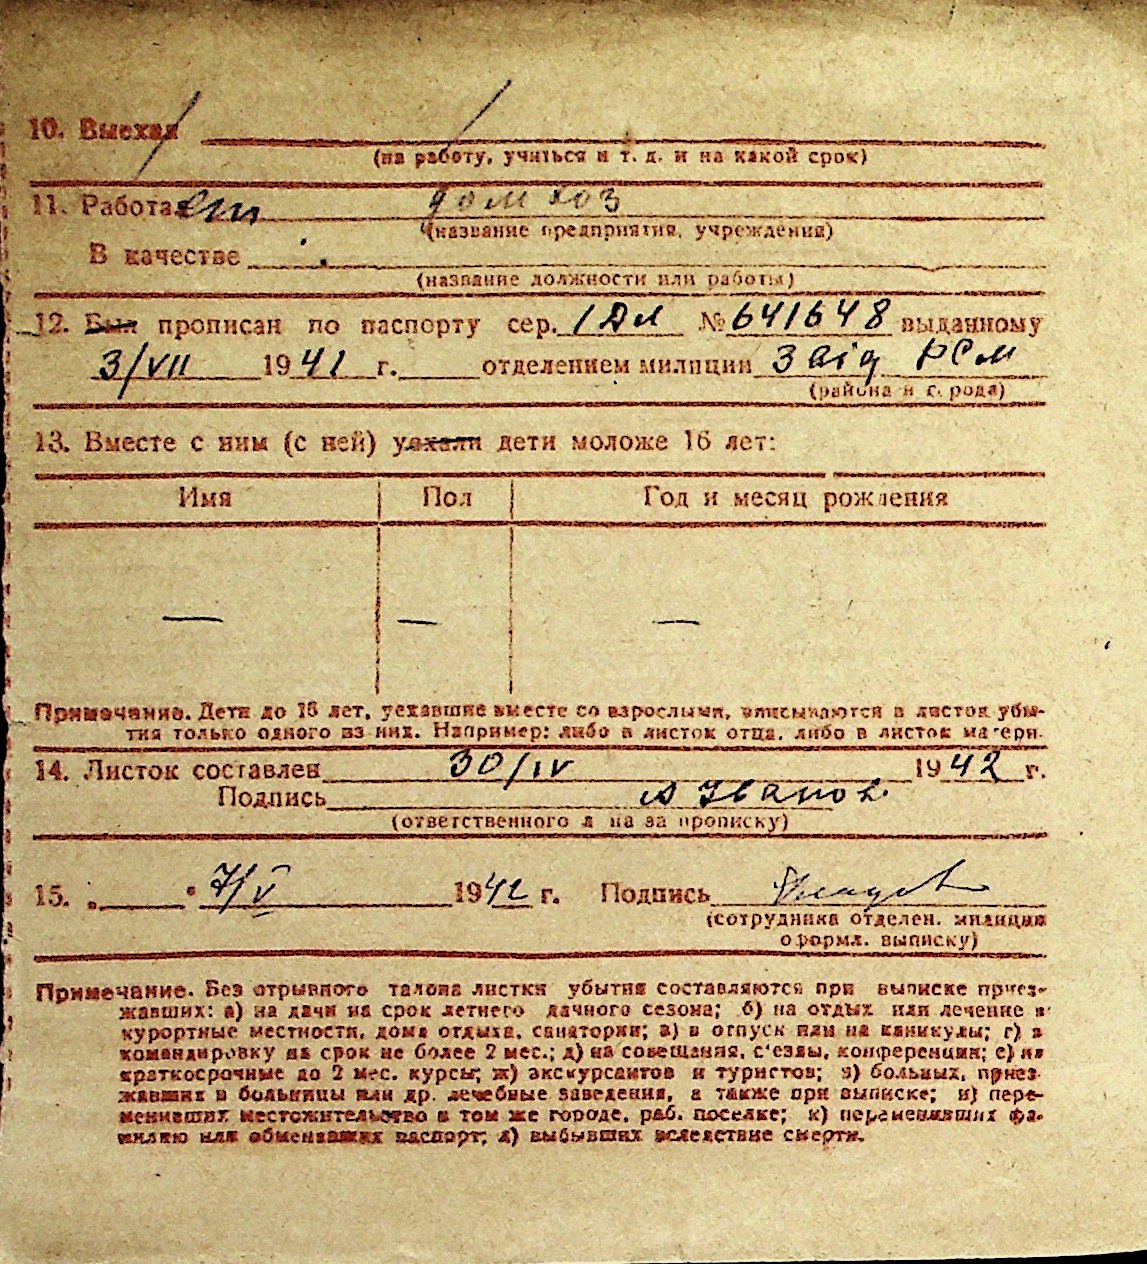 10. Выехал
(на работу, учиться и т. д. и на какой срок)
11. Работает домхоз
(название предприятия, учреждения)
В качестве
(название должности или работы)
12. Был прописан по паспорту сер. 1 Дл № 641648 выданному
3/VII 1941 г. отделением милиции 3 від РСМ
(района и города)
13. Вместе с ним (с ней) уехали дети моложе 16 лет:
Имя Пол Год и месяц рождения
— — —
Примечание. Дети до 16 лет, уехавшие вместе со взрослыми, вписываются в листок убы-
тия только одного из них. Например: либо в листок отца, либо в листок матери.
14. Листок составлен 30/IV 1942 г.
Подпись А Иванов
(ответственного л на за прописку)
15. „ " 7/V 1942 г. Подпись
(сотрудника отделен. милиции
оформл. выписку)
Примечание. Без отрывного талона листки убытия составляются при выписке приез-
жавших: а) на дачи на срок летнего дачного сезона; б) на отдых или лечение в
курортные местности, дома отдыха, санатории; в) в отпуск или на каникулы; г) в
командировку на срок не более 2 мес.; д) на совещания, с'езды, конференции; е) на
краткосрочные до 2 мес. курсы; ж) экскурсантов и туристов; з) больных, приез-
жавших в больницы или др. лечебные заведения, а также при выписке; и) пере-
менивших местожительство в том же городе, раб. поселке; к) переменивших фа-
милию или обменявших паспорт; л) выбывших вследствие смерти.